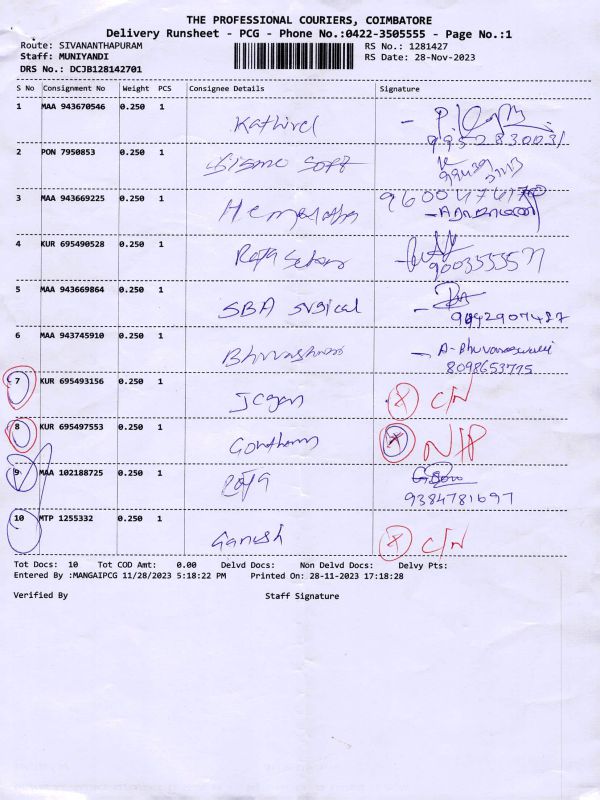 THE PROFESSIONAL COURIERS, COIMBATORE
Delivery Runsheet - PCG - Phone No.:0422-3505555 - Page No.:1
Route: SIVANANTHAPURAM RS No.: 1281427
Staff: MUNIYANDI RS Date: 28-Nov-2023
DRS No.: DCJB128142701
S No Consignment No Weight PCS Consignee Details Signature
1 MAA 943670546 0.250 1 Kathirel
9952830031
2 PON 7950853 0.250 1 Soft
3 MAA 943669225 0.250 1 Hemalatha
4 KUR 695490528 0.250 1 Raja Sekar
9003555577
5 MAA 943669864 0.250 1 SBA Surgical
9042907427
6 MAA 943745910 0.250 1 A-Bhuvaneswari
8098653775
7 KUR 695493156 0.250 1 Jegan X C/N
8 KUR 695497553 0.250 1 Gowtham X N/P
9 MAA 102188725 0.250 1 Raja
9384781697
10 MTP 1255332 0.250 1 Ganesh X C/N
Tot Docs: 10 Tot COD Amt: 0.00 Delvd Docs: Non Delvd Docs: Delvy Pts:
Entered By :MANGAIPCG 11/28/2023 5:18:22 PM Printed On: 28-11-2023 17:18:28
Verified By Staff Signature